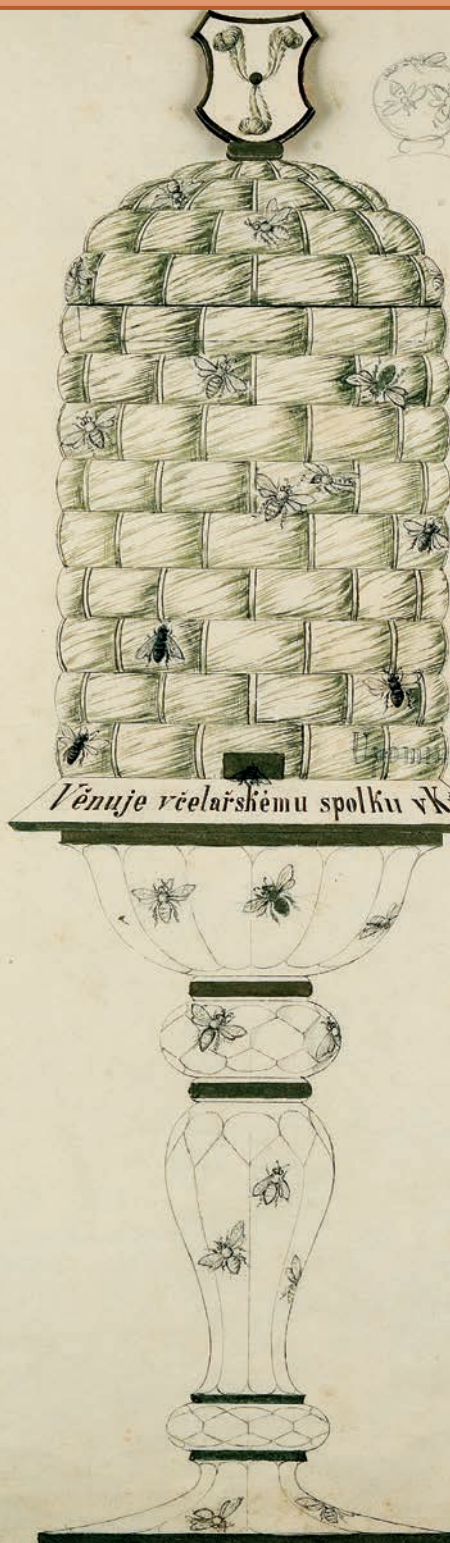 Věnuje včelařskému spolku v K